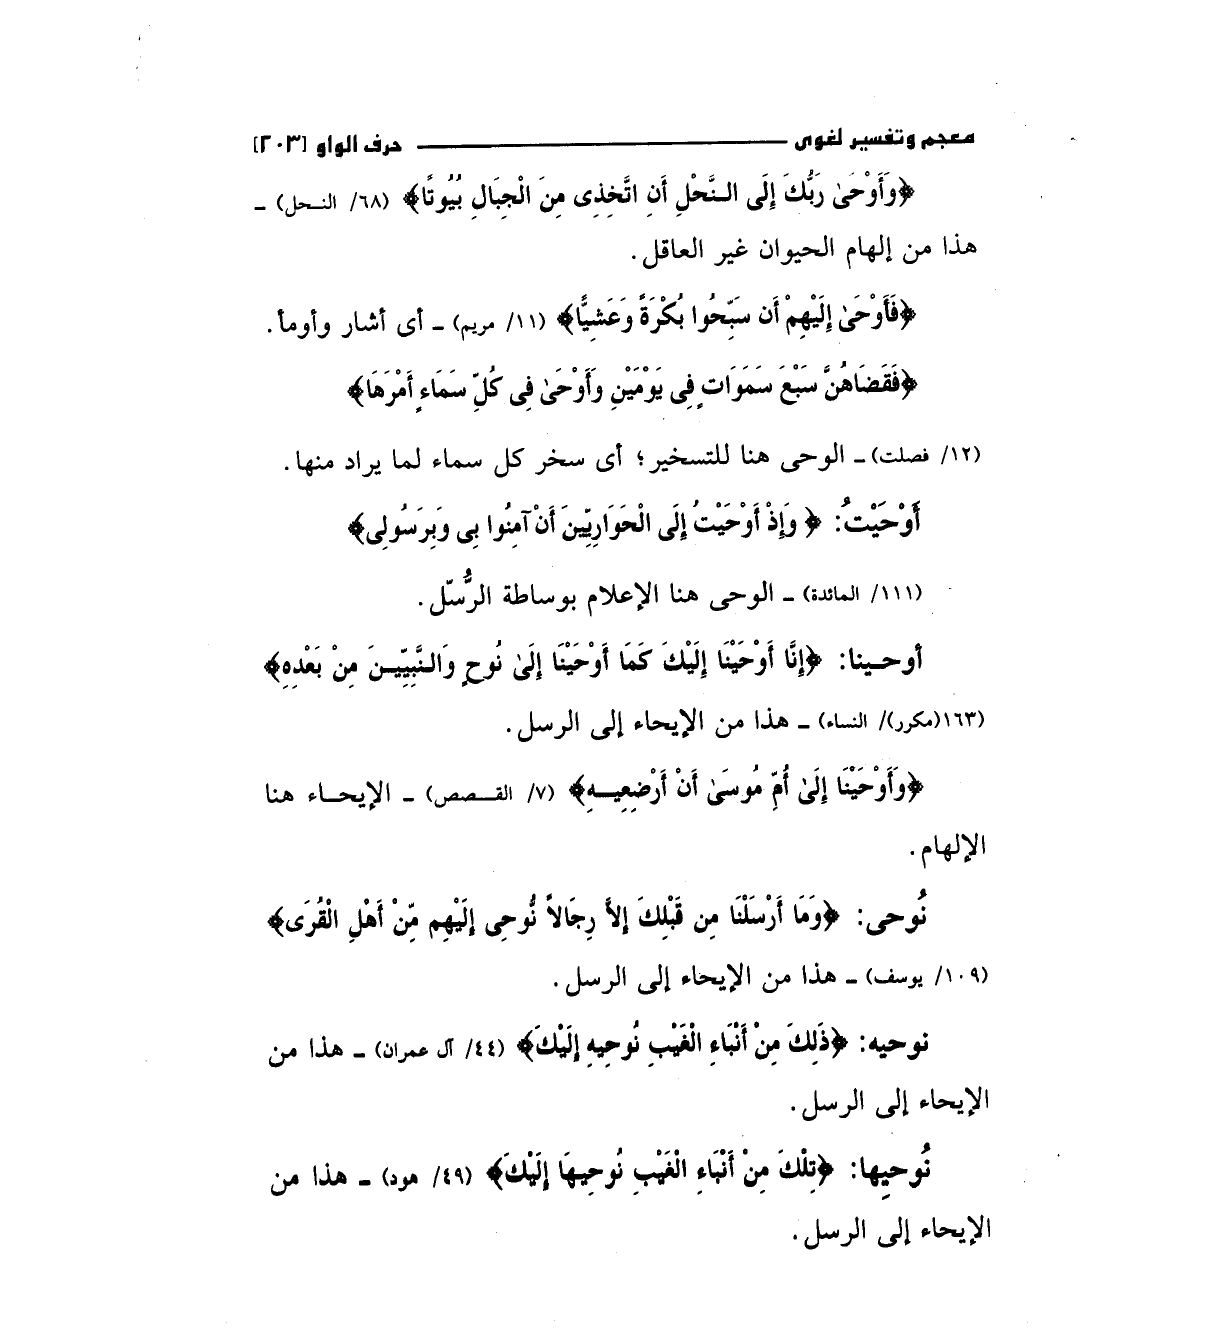 معجم وتفسير لغوى ــــــــــــ حرف الواو [٢٠٣]
﴿وَأَوْحَىٰ رَبُّكَ إِلَى النَّحْلِ أَنِ اتَّخِذِى مِنَ الْجِبَالِ بُيُوتًا﴾ (٦٨/ النحل) ـ
هذا من إلهام الحيوان غير العاقل.
﴿فَأَوْحَىٰ إِلَيْهِمْ أَن سَبِّحُوا بُكْرَةً وَعَشِيًّا﴾ (١١/ مريم) ـ أى أشار وأومأ.
﴿فَقَضَاهُنَّ سَبْعَ سَمَوَاتٍ فِى يَوْمَيْنِ وَأَوْحَىٰ فِى كُلِّ سَمَاءٍ أَمْرَهَا﴾
(١٢/ فصلت) ـ الوحى هنا للتسخير؛ أى سخر كل سماء لما يراد منها.
أَوْحَيْتُ: ﴿وَإِذْ أَوْحَيْتُ إِلَى الْحَوَارِيِّينَ أَنْ آمِنُوا بِى وَبِرَسُولِى﴾
(١١١/ المائدة) ـ الوحى هنا الإعلام بوساطة الرُّسّل.
أوحينا: ﴿إِنَّا أَوْحَيْنَا إِلَيْكَ كَمَا أَوْحَيْنَا إِلَىٰ نُوحٍ وَالنَّبِيِّينَ مِنْ بَعْدِهِ﴾
(١٦٣(مكرر)/ النساء) ـ هذا من الإيحاء إلى الرسل.
﴿وَأَوْحَيْنَا إِلَىٰ أُمِّ مُوسَىٰ أَنْ أَرْضِعِيهِ﴾ (٧/ القصص) ـ الإيحاء هنا
الإلهام.
نُوحى: ﴿وَمَا أَرْسَلْنَا مِن قَبْلِكَ إِلاَّ رِجَالاً نُّوحِى إِلَيْهِم مِّنْ أَهْلِ الْقُرَى﴾
(١٠٩/ يوسف) ـ هذا من الإيحاء إلى الرسل.
نوحيه: ﴿ذَلِكَ مِنْ أَنْبَاءِ الْغَيْبِ نُوحِيهِ إِلَيْكَ﴾ (٤٤/ آل عمران) ـ هذا من
الإيحاء إلى الرسل.
نُوحيها: ﴿تِلْكَ مِنْ أَنْبَاءِ الْغَيْبِ نُوحِيهَا إِلَيْكَ﴾ (٤٩/ هود) ـ هذا من
الإيحاء إلى الرسل.